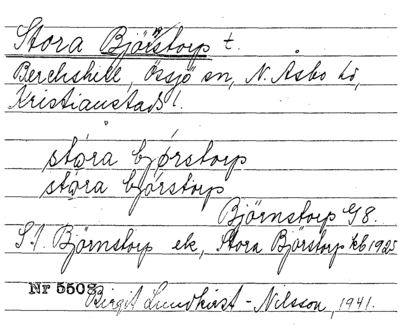 Stora Björstorp t.
Berchshill, Össjö sn, N. Åsbo hd,
Kristianstads l.
stora bjørstorp
stora bjørstorp
Björnstorp G8.
S.l. Björnstorp ek, Stora Björstorp kb 1925
Nr 5508
Birgit Lundkvist-Nilsson, 1941.